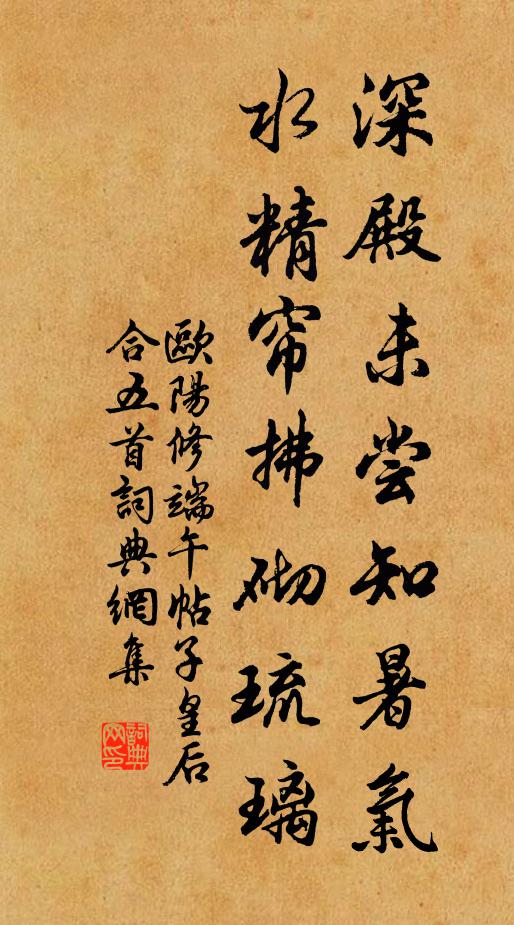 深殿未尝知暑氣
水精帘拂砌琉璃
歐陽修端午帖子皇后
合五首詞典網集
詞典網印